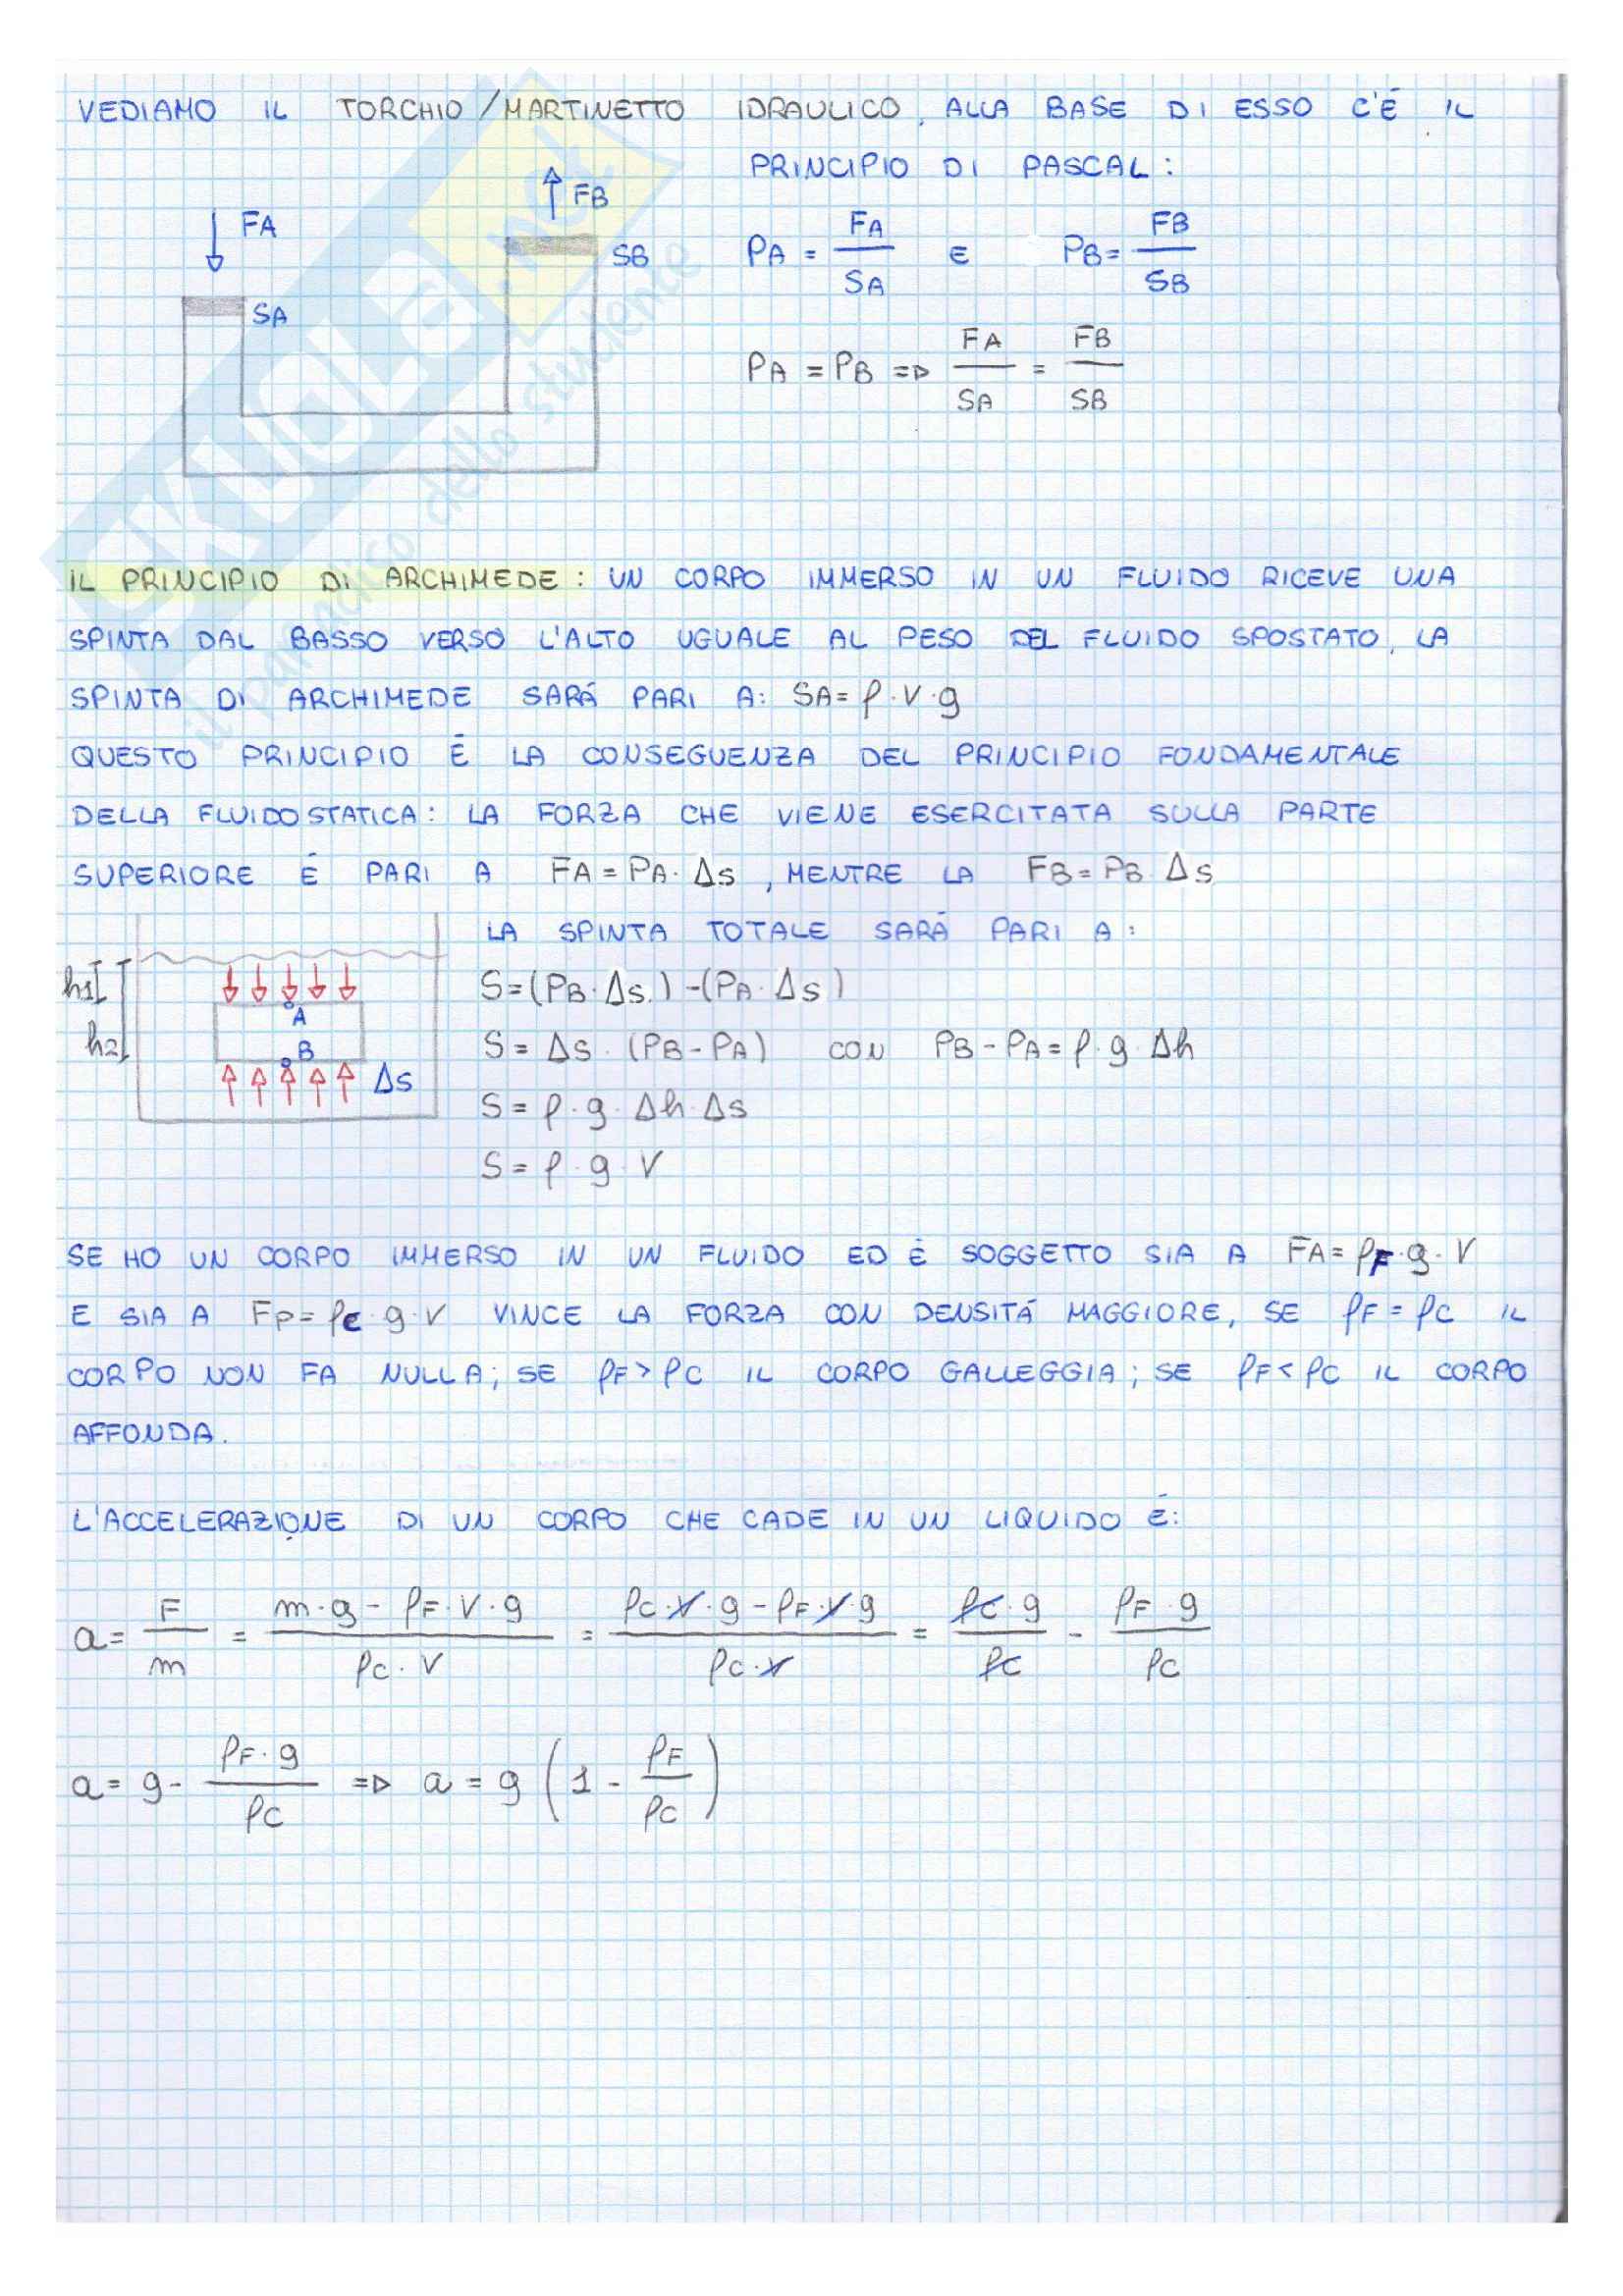 VEDIAMO IL TORCHIO/MARTINETTO IDRAULICO, ALLA BASE DI ESSO C'É IL
PRINCIPIO DI PASCAL:
FA
FB
SA
SB
PA = FA/SA E PB = FB/SB
PA = PB => FA/SA = FB/SB
SKUOLA.net
il paradiso dello studente
IL PRINCIPIO DI ARCHIMEDE: UN CORPO IMMERSO IN UN FLUIDO RICEVE UNA
SPINTA DAL BASSO VERSO L'ALTO UGUALE AL PESO DEL FLUIDO SPOSTATO, LA
SPINTA DI ARCHIMEDE SARÁ PARI A: SA = ρ·V·g
QUESTO PRINCIPIO É LA CONSEGUENZA DEL PRINCIPIO FONDAMENTALE
DELLA FLUIDOSTATICA: LA FORZA CHE VIENE ESERCITATA SULLA PARTE
SUPERIORE É PARI A FA = PA·Δs, MENTRE LA FB = PB·Δs
LA SPINTA TOTALE SARÁ PARI A:
h1
h2
A
B
Δs
S = (PB·Δs.) - (PA·Δs)
S = Δs·(PB - PA) CON PB - PA = ρ·g·Δh
S = ρ·g·Δh·Δs
S = ρ·g·V
SE HO UN CORPO IMMERSO IN UN FLUIDO ED É SOGGETTO SIA A FA = ρF·g·V
E SIA A FP = ρC·g·V VINCE LA FORZA CON DENSITÁ MAGGIORE, SE ρF = ρC IL
CORPO NON FA NULLA; SE ρF > ρC IL CORPO GALLEGGIA; SE ρF < ρC IL CORPO
AFFONDA.
L'ACCELERAZIONE DI UN CORPO CHE CADE IN UN LIQUIDO É:
a = F/m = (m·g - ρF·V·g)/(ρC·V) = (ρC·V·g - ρF·V·g)/(ρC·V) = (ρC·g)/ρC - (ρF·g)/ρC
a = g - (ρF·g)/ρC => a = g (1 - ρF/ρC)